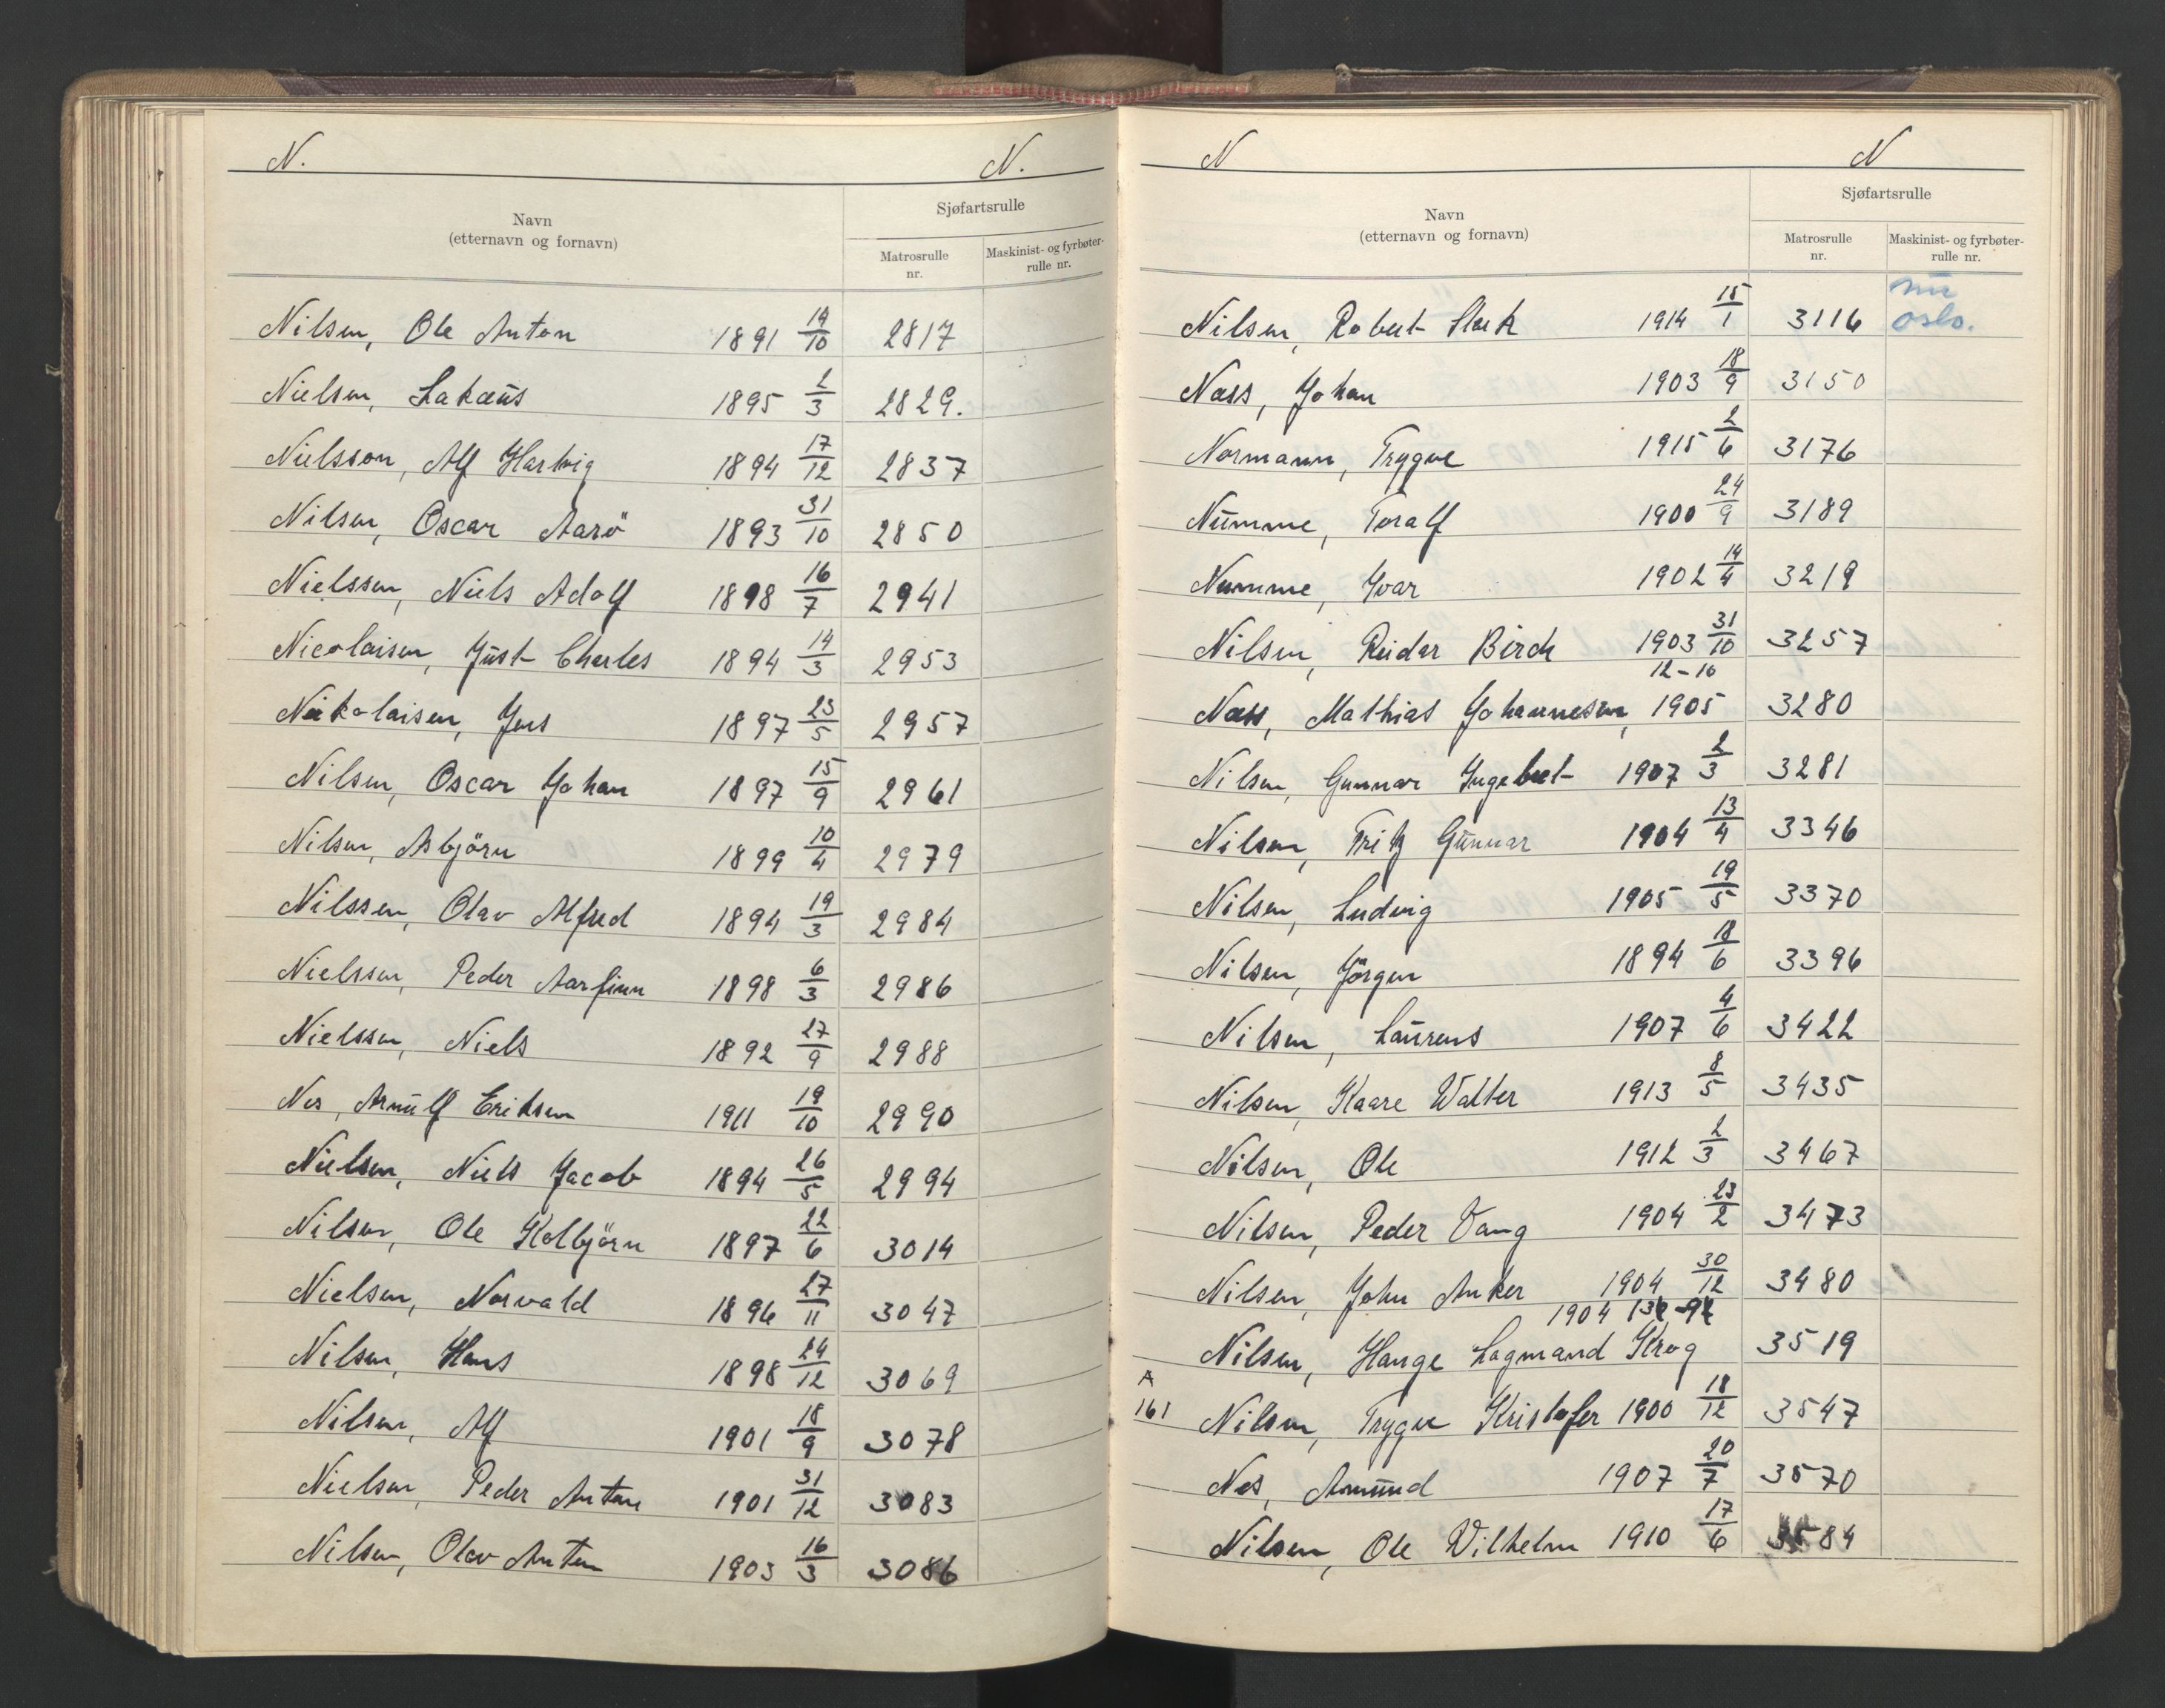 N. N.
Navn
(etternavn og fornavn)
Sjøfartsrulle
Matrosrulle
nr.
Maskinist- og fyrbøter-
rulle nr.
Nilsen, Ole Anton 1891 14/10 2817
Nielsen, Lakæus 1895 2/3 2829.
Nielsson, Alf Hartvig 1894 17/12 2837
Nilsen, Oscar Aarö 1893 31/10 2850
Nielssen, Niels Adolf 1898 16/7 2941
Nicolaisen, Just Charles 1894 14/3 2953
Nikolaisen, Jens 1897 23/5 2957
Nilsen, Oscar Johan 1897 15/9 2961
Nilsen, Asbjörn 1899 10/4 2979
Nilssen, Olav Alfred 1894 19/3 2984
Nielssen, Peder Aarfinn 1898 6/3 2986
Nielssen, Niels 1892 27/9 2988
Nes, Arnulf Eriksen 1911 19/10 2990
Nielsen, Niels Jacob 1894 26/5 2994
Nilsen, Ole Kolbjörn 1897 22/6 3014
Nielsen, Norvald 1896 27/11 3047
Nilsen, Hans 1898 24/12 3069
Nilsen, Alf 1901 18/9 3078
Nielsen, Peder Anton 1901 31/12 3083
Nilsen, Olav Anton 1903 16/3 3086
N N
Navn
(etternavn og fornavn)
Sjøfartsrulle
Matrosrulle
nr.
Maskinist- og fyrbøter-
rulle nr.
nu
Nilsen, Robert 1914 15/1 3116 oslo.
Næss, Johan 1903 18/9 3150
Normann, Trygve 1915 2/6 3176
Numme, Toralf 1900 24/9 3189
Numme, Ivar 1902 14/4 3219
Nilsen, Reidar Birch 1903 31/10 3257
12-10
Næss, Mathias Johannesen, 1905 3280
Nilsen, Gunnar Ingebret 1907 2/3 3281
Nilsen, Fritz Gunnar 1904 13/4 3346
Nilsen, Ludvig 1905 19/5 3370
Nilsen, Jörgen 1894 18/6 3396
Nilsen, Laurens 1907 4/6 3422
Nilsen, Kaare Walter 1913 8/5 3435
Nilsen, Ole 1912 2/3 3467
Nilsen, Peder Vang 1904 23/2 3473
Nilsen, John Anker 1904 30/12 3480
1904
Nilsen, Hauge Lagmand Krog 3519
A
161 Nilsen, Trygve Kristofer 1900 18/12 3547
Nes, Amund 1907 20/7 3570
Nilsen, Ole Wilhelm 1910 17/6 3584